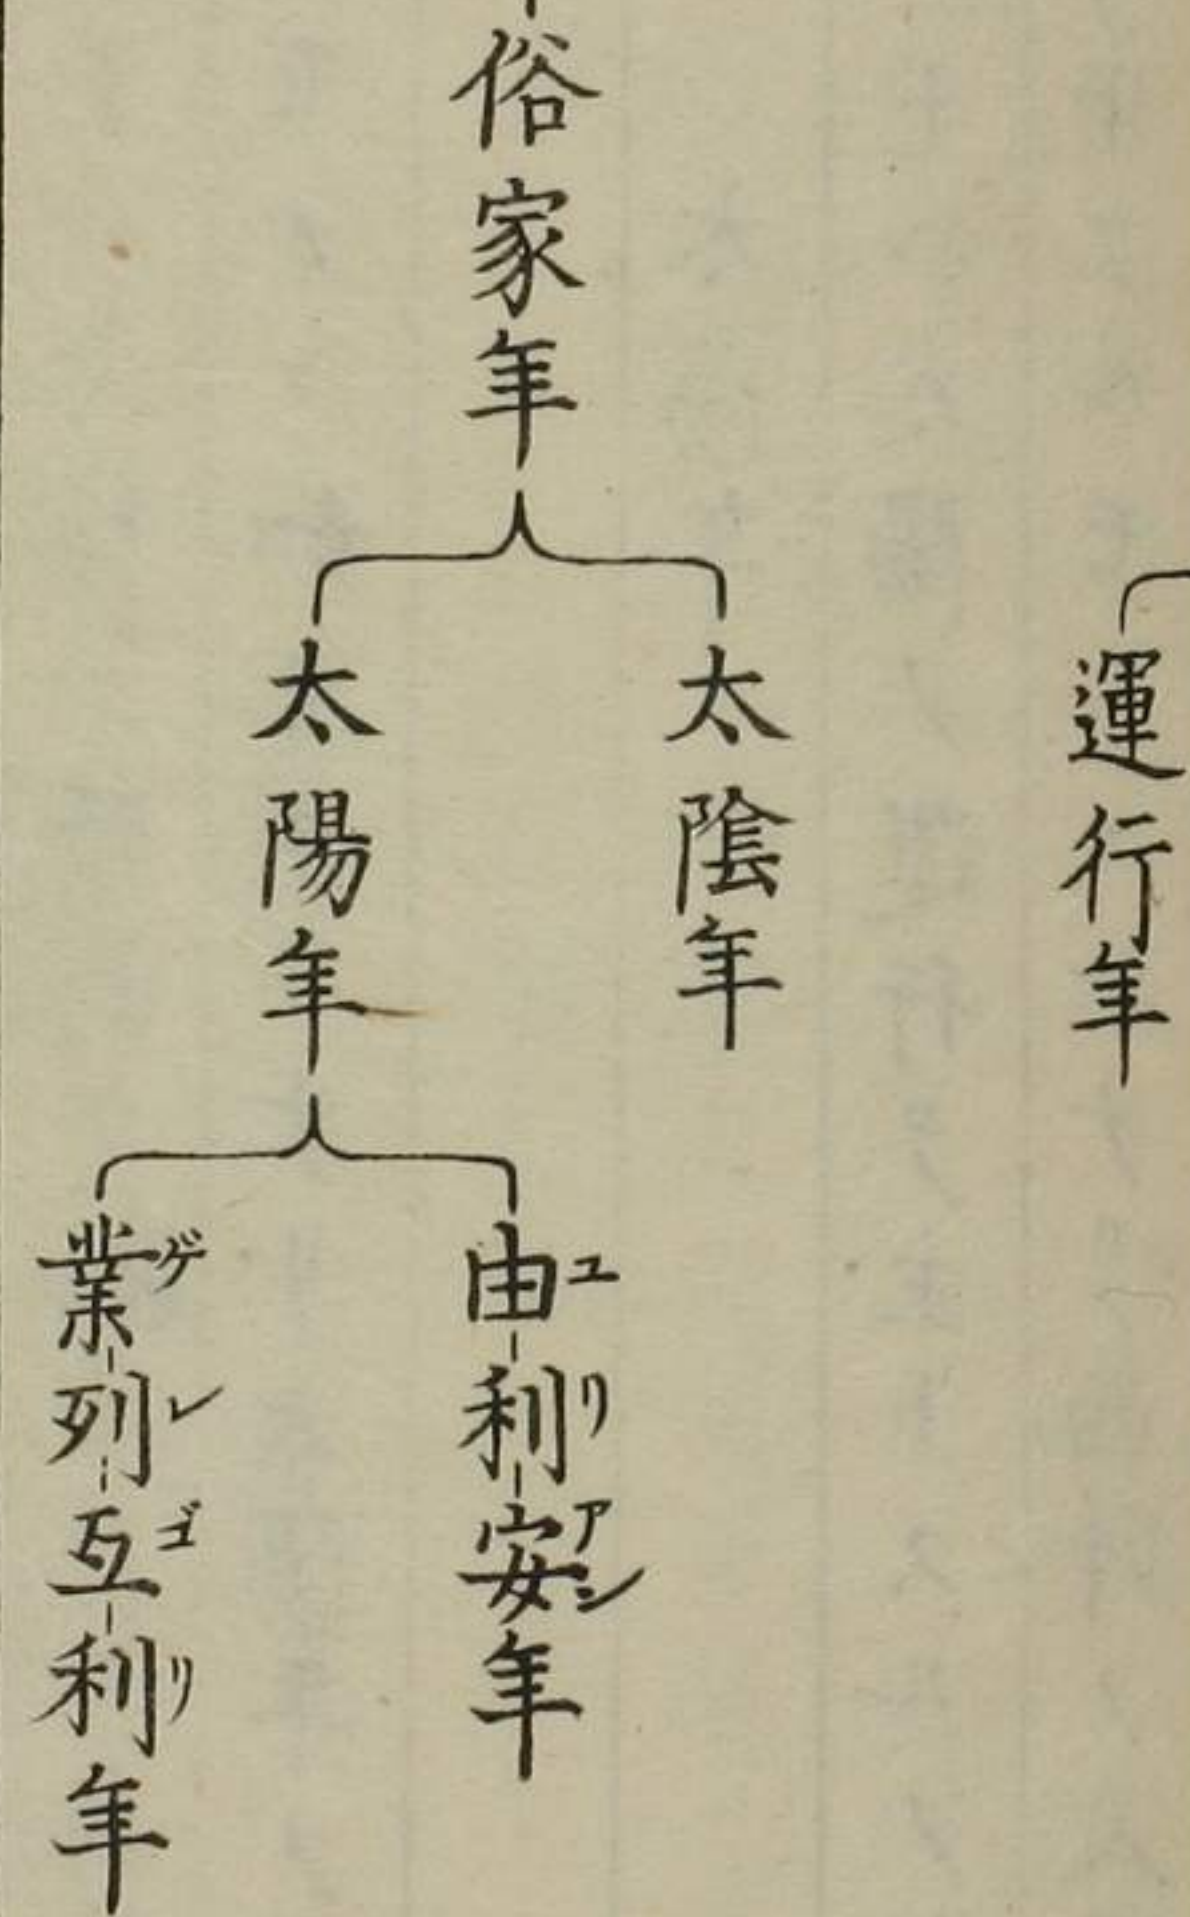 運行年
俗家年
太陰年
太陽年
由利安年
ユリアシ
業列互利年
ゲレゴリ